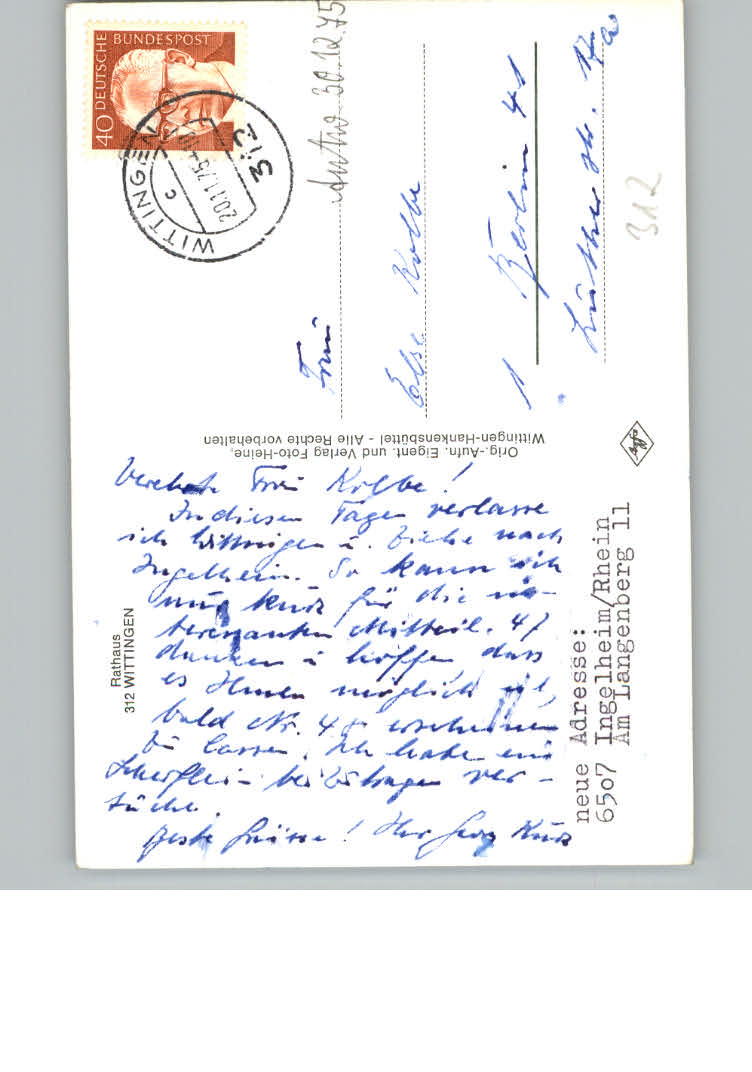 DEUTSCHE BUNDESPOST
40
WITTINGEN
c
20.11.75
312
Antw 30.12.75
Frau
Else Kolbe
1 Berlin 41
Luther str.
312
Orig.-Aufn. Eigent. und Verlag Foto-Heine,
Wittingen-Hankensbüttel - Alle Rechte vorbehalten
Agfa
Rathaus
312 WITTINGEN
Verehrte Frau Kolbe!
In diesen Tagen verlasse
ich Wittingen u. ziehe nach
Ingelheim. So kann ich
nur kurz für die in-
teressanten Mitteil. 47
danken u hoffen dass
es Ihnen möglich ist,
bald Nr. 48 erscheinen
zu lassen. Ich habe ein
Scherflein beizutragen ver-
sucht.
Beste Grüsse! Ihr Georg Kurz
neue Adresse:
6507 Ingelheim/Rhein
Am Langenberg 11